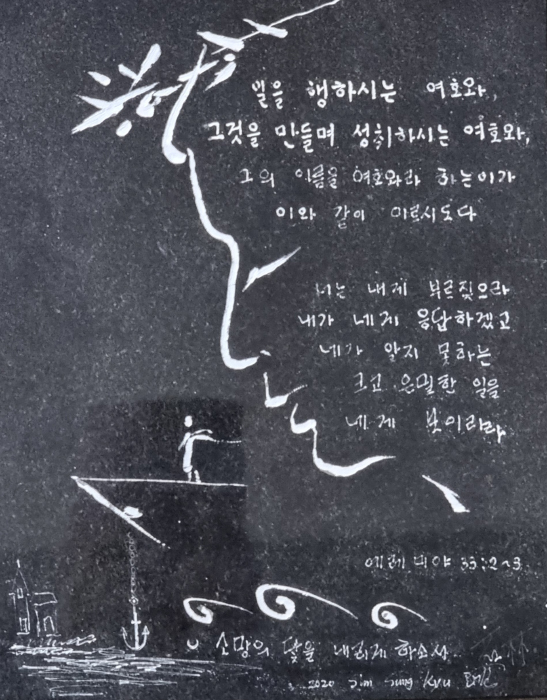 일을 행하시는 여호와,
그것을 만들며 성취하시는 여호와,
그의 이름을 여호와라 하는이가
이와 같이 이르시도다
너는 내게 부르짖으라
내가 네게 응답하겠고
네가 알지 못하는
크고 은밀한 일을
네게 보이리라
예레미야 33:2~3
소망의 닻을 내리게 하소서
2020 Jim Jung Kyu